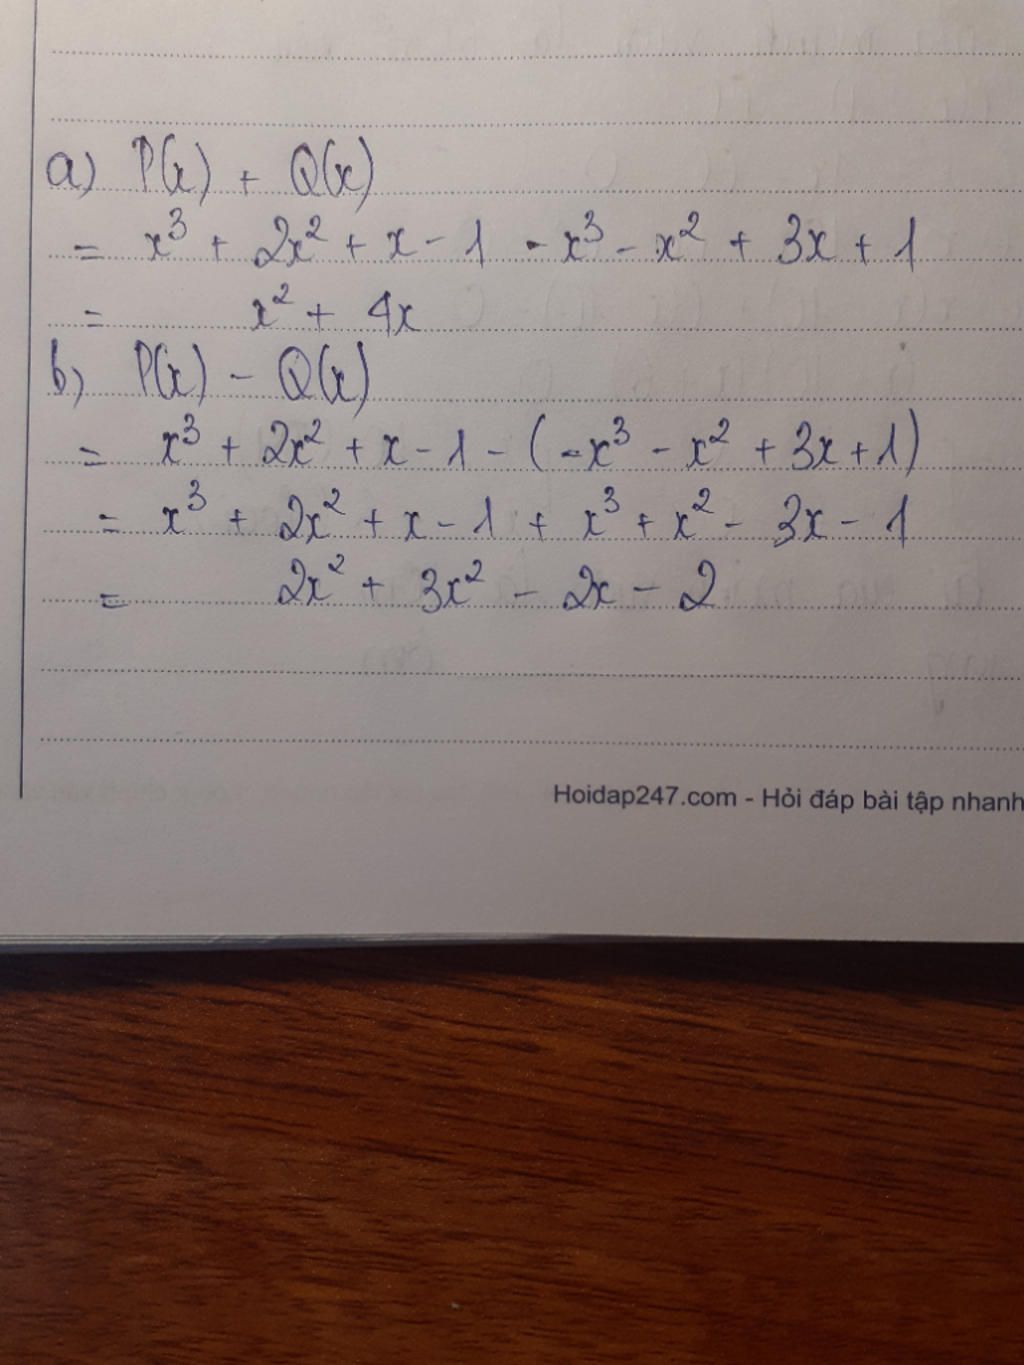 a) P(x) + Q(x)
= x³ + 2x² + x - 1 - x³ - x² + 3x + 1
= x² + 4x
b) P(x) - Q(x)
= x³ + 2x² + x - 1 - (-x³ - x² + 3x + 1)
= x³ + 2x² + x - 1 + x³ + x² - 3x - 1
= 2x² + 3x² - 2x - 2
Hoidap247.com - Hỏi đáp bài tập nhanh